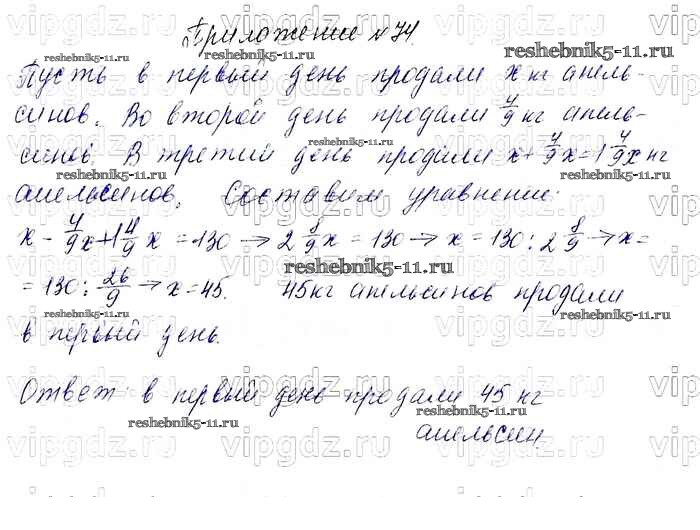 Приложение №74.
Пусть в первый день продали x кг апель-
синов. Во второй день продали 4/9 кг апель-
синов. В третий день продали x+4/9x=1 4/9x кг
апельсинов. Составим уравнение:
x - 4/9x+1 4/9x = 130 → 2 8/9x = 130 → x = 130 : 2 8/9 → x =
= 130 : 26/9 → x = 45. 45 кг апельсинов продали
в первый день.
Ответ: в первый день продали 45 кг
апельсин.
vipgdz.ru
reshebnik5-11.ru